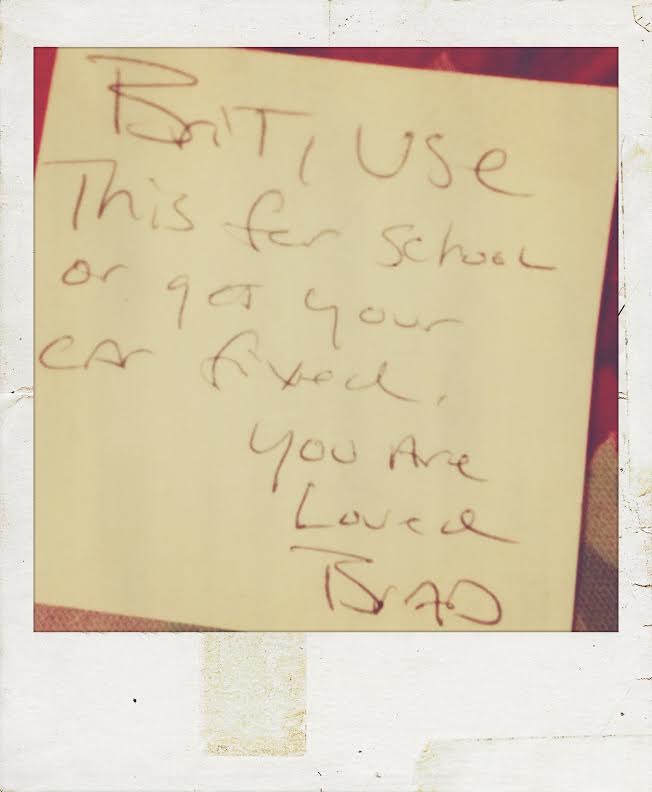 Brit, use
This for school
or get your
car fixed.
you Are
Loved
BrAD